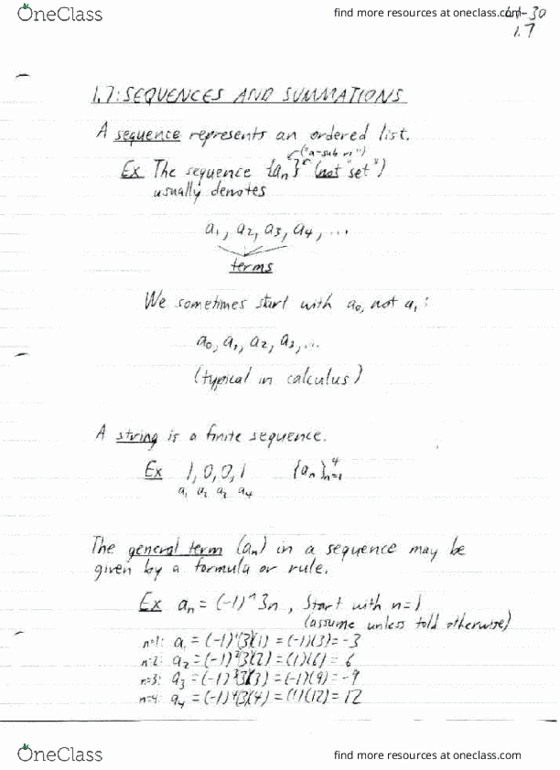 OneClass
find more resources at oneclass.com
1.7
1.7: SEQUENCES AND SUMMATIONS
A sequence represents an ordered list.
("a-sub n")
Ex The sequence {aₙ} (not "set")
usually denotes
a₁, a₂, a₃, a₄, ...
terms
We sometimes start with a₀, not a₁:
a₀, a₁, a₂, a₃, ...
(typical in calculus)
A string is a finite sequence.
Ex 1, 0, 0, 1 {aₙ}⁴ₙ₌₁
a₁ a₂ a₃ a₄
The general term (aₙ) in a sequence may be
given by a formula or rule.
Ex aₙ = (-1)ⁿ 3n, Start with n=1
(assume unless told otherwise)
n=1: a₁ = (-1)¹(3)(1) = (-1)(3) = -3
n=2: a₂ = (-1)²(3)(2) = (1)(6) = 6
n=3: a₃ = (-1)³(3)(3) = (-1)(9) = -9
n=4: a₄ = (-1)⁴(3)(4) = (1)(12) = 12
OneClass
find more resources at oneclass.com